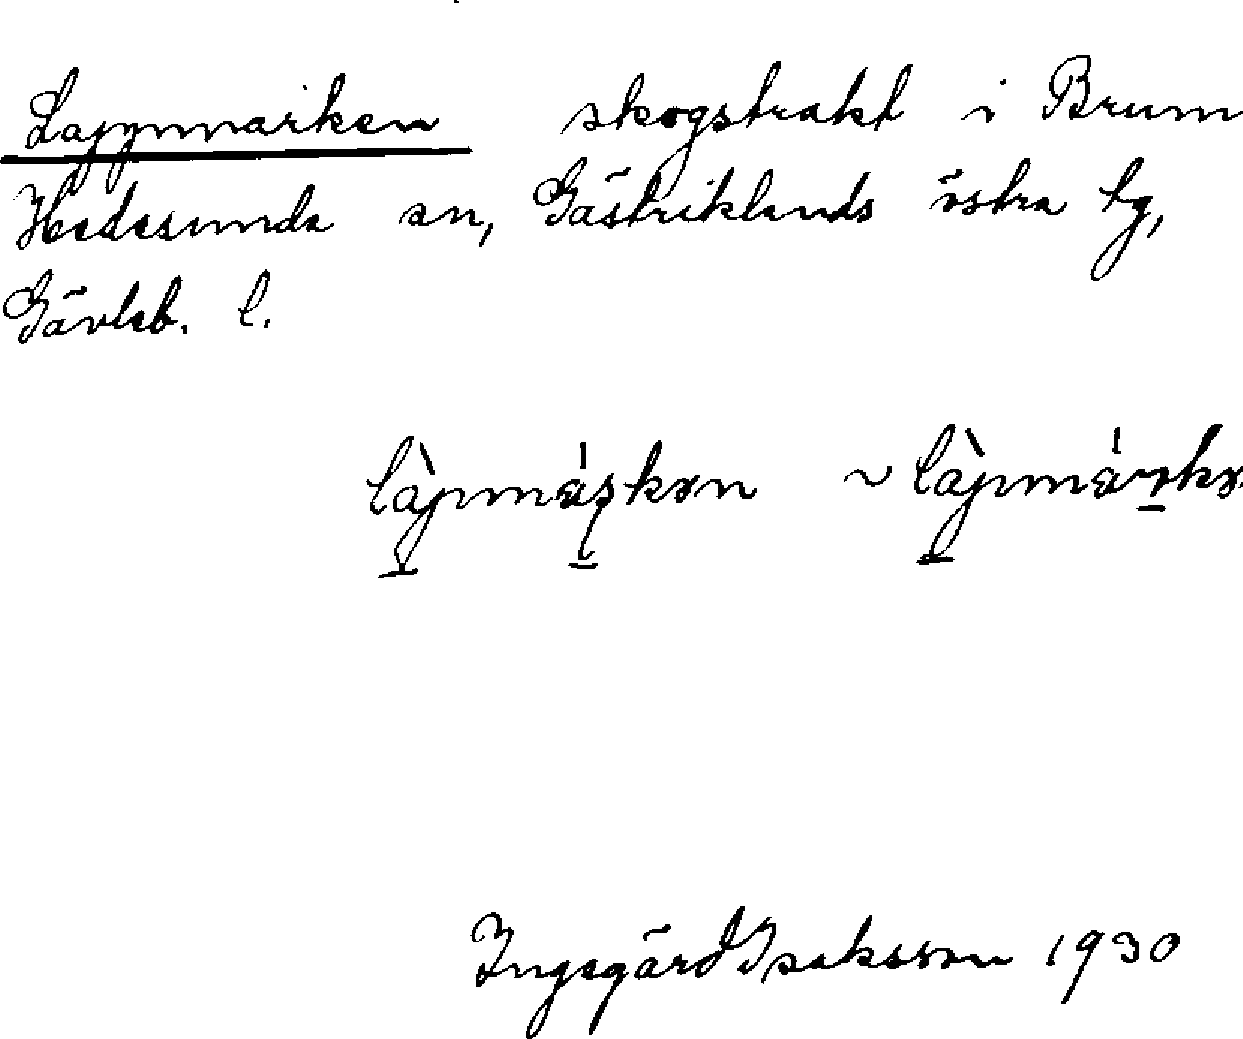 Lappmarken skogstrakt i Brum
Hedesunda sn, Gästriklands östra tg,
Gävleb. l.
~
Ingegärd Isaksson 1930